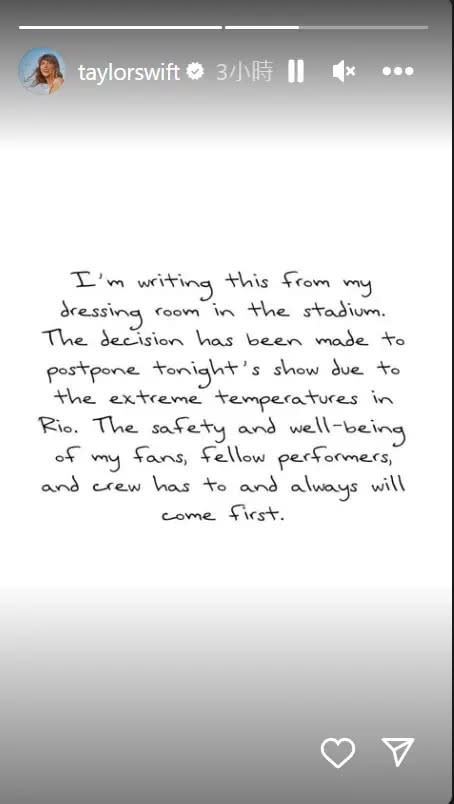 taylorswift 3小時
I'm writing this from my
dressing room in the stadium.
The decision has been made to
postpone tonight's show due to
the extreme temperatures in
Rio. The safety and well-being
of my fans, fellow performers,
and crew has to and always will
come first.